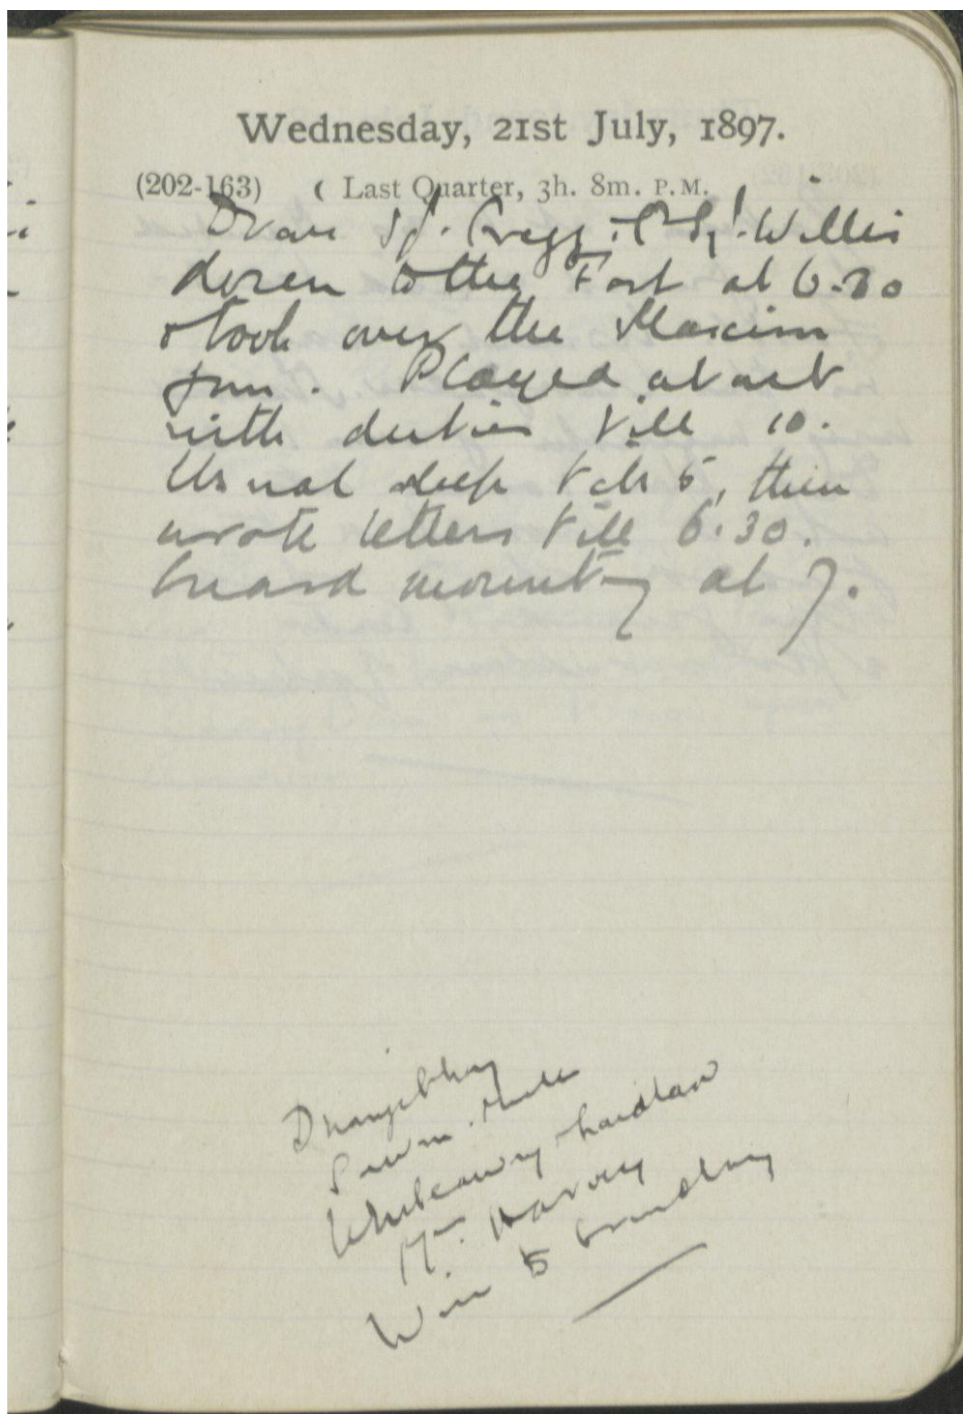 Wednesday, 21st July, 1897.
(202-163) ( Last Quarter, 3h. 8m. P.M.
Drove Sgt. Gregg & Willis
down to the Fort at 6.30
& took over the Maxim
gun. Played about
with duties till 10.
Usual sleep till 5, then
wrote letters till 6.30.
Guard mounting at 7.
Whiteaway Laidlaw
Harvey
Wire to Grindlay